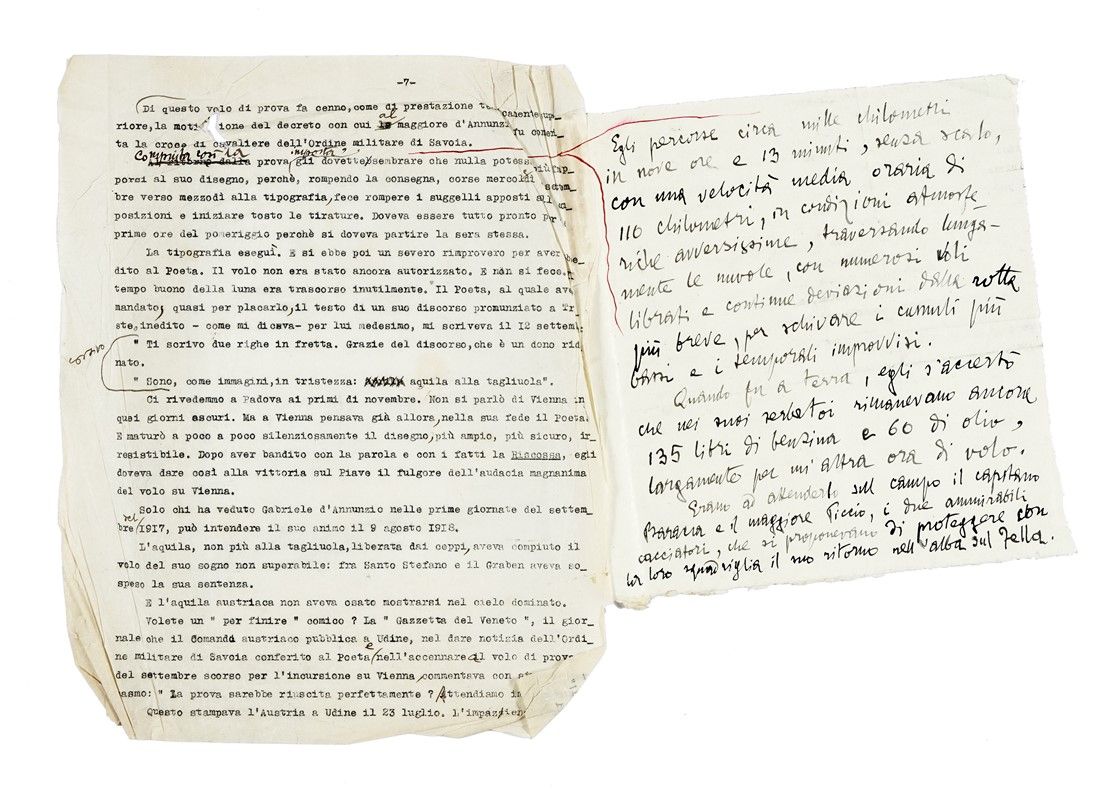 -7-
Di questo volo di prova fa cenno,come di prestazione
riore,la del decreto con cui al maggiore d'Annunzi
ta la croce di cavaliere dell'Ordine militare di Savoia.
Compiuta così la prova imposta gli dovette sembrare che nulla potess
porsi al suo disegno, perchè, rompendo la consegna, corse mercoldì
bre verso mezzodì alla tipografia,fece rompere i suggelli apposti
posizioni e iniziare tosto le tirature. Doveva essere tutto pronto
prime ore del pomeriggio perchè si doveva partire la sera stessa.
La tipografia eseguì. E si ebbe poi un severo rimprovero per aver
dito al Poeta. Il volo non era stato ancora autorizzato. E non si fece.
tempo buono della luna era trascorso inutilmente. Il Poeta, al quale ave
mandato, quasi per placarlo,il testo di un suo discorso pronunziato a Tr
ste,inedito - come mi diceva- per lui medesimo, mi scriveva il 12 settem.
corsivo
" Ti scrivo due righe in fretta. Grazie del discorso,che è un dono
nato.
" Sono, come immagini,in tristezza: aquila alla tagliuola".
Ci rivedemmo a Padova ai primi di novembre. Non si parlò di Vienna in
quei giorni oscuri. Ma a Vienna pensava già allora,nella sua fede il Poeta.
E maturò a poco a poco silenziosamente il disegno,più ampio, più sicuro, ir_
resistibile. Dopo aver bandito con la parola e con i fatti la Riscossa, egli
doveva dare così alla vittoria sul Piave il fulgore dell'audacia magnanima
del volo su Vienna.
Solo chi ha veduto Gabriele d'Annunzio nelle prime giornate del settem_
bre del 1917, può intendere il suo animo il 9 agosto 1918.
L'aquila, non più alla tagliuola,liberata dai ceppi,aveva compiuto il
volo del suo sogno non superabile: fra Santo Stefano e il Graben aveva so_
speso la sua sentenza.
E l'aquila austriaca non aveva osato mostrarsi nel cielo dominato.
Volete un " per finire " comico ? La " Gazzetta del Veneto ", il gior_
nale che il Comando austriaco pubblica a Udine, nel dare notizia dell'Ordi_
ne militare di Savoia conferito al Poeta e nell'accennare al volo di prova
del settembre scorso per l'incursione su Vienna,commentava con
asmo: " La prova sarebbe riuscita perfettamente ? Attendiamo
Questo stampava l'Austria a Udine il 23 luglio. L'impazien
Egli percorse circa mille chilometri
in nove ore e 13 minuti, senza scalo,
con una velocità media oraria di
110 chilometri, in condizioni atmosfe
riche avversissime, traversando lunga-
mente le nuvole, con numerosi voli
librati e continue deviazioni dalla rotta
più breve, per schivare i cumuli più
bassi e i temporali improvvisi.
Quando fu a terra, egli s'accertò
che nei suoi serbatoi rimanevano ancora
135 litri di benzina e 60 di olio,
largamente per un'altra ora di volo.
Erano ad attenderlo sul campo il capitano
Baracca e il maggiore Piccio, i due ammirabili
cacciatori, che si proponevano di proteggere con
la loro squadriglia il suo ritorno nell'alba sul Fella.